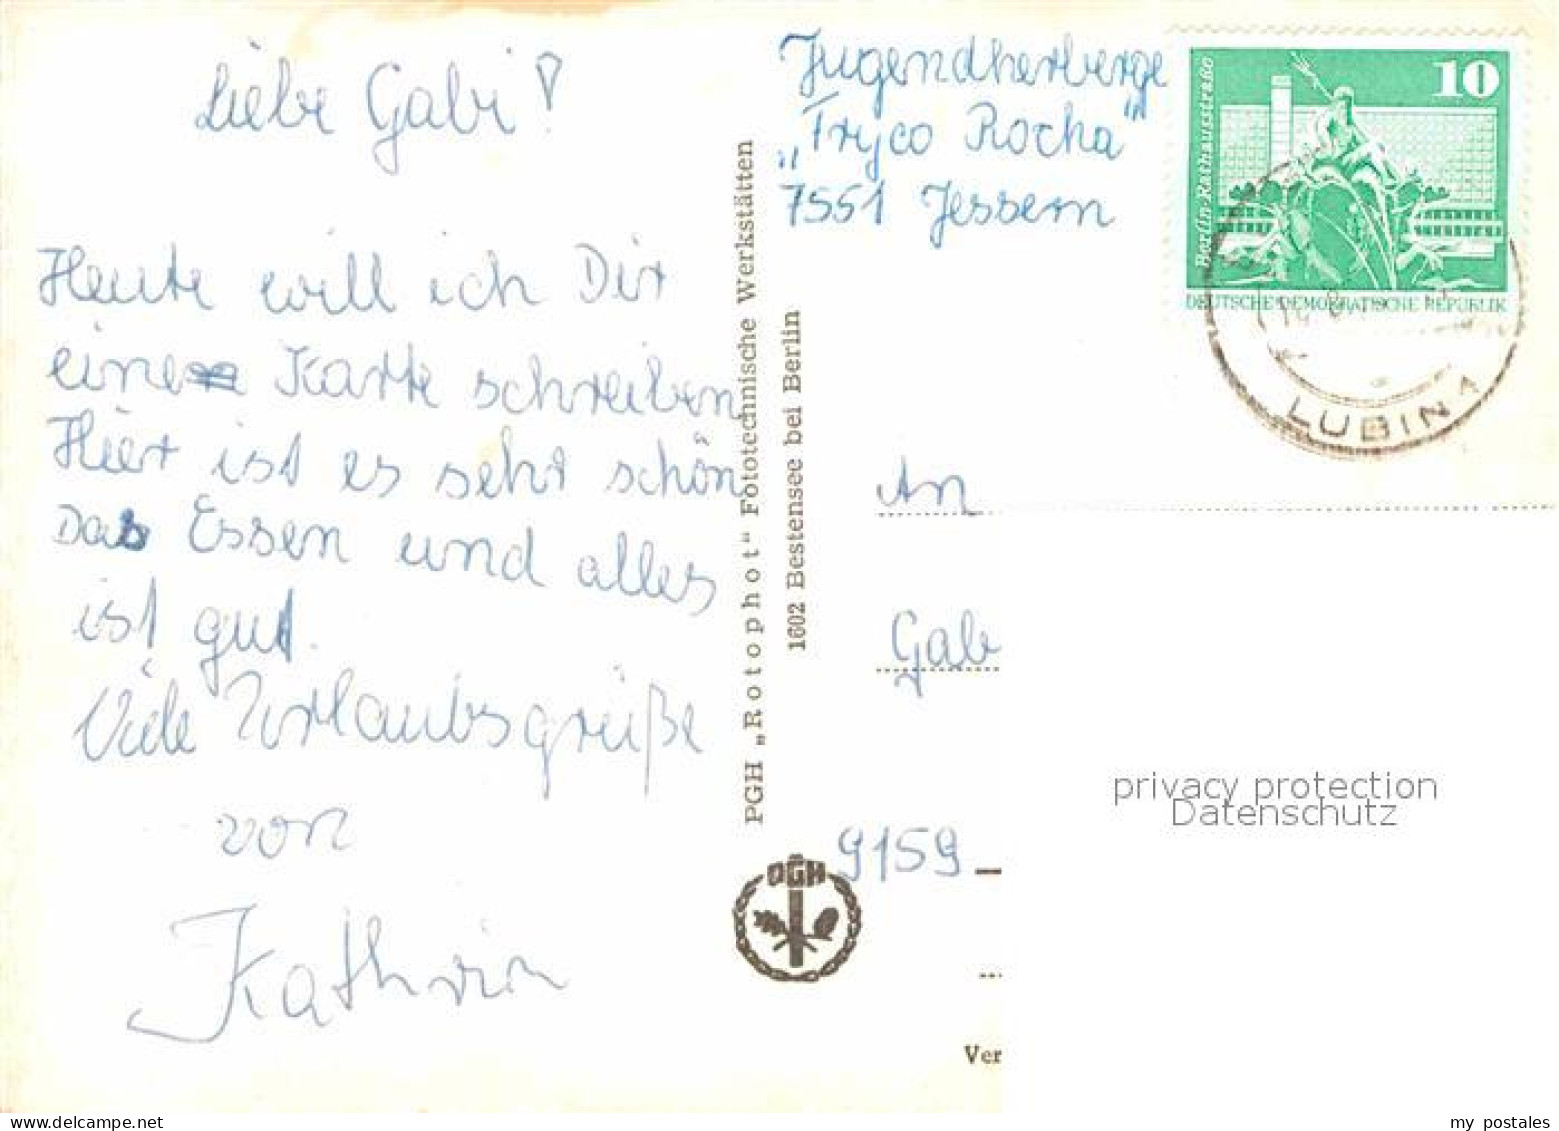 Liebe Gabi!
Heute will ich Dir
eine Karte schreiben
Hier ist es sehr schön
Das Essen und alles
ist gut.
Viele Urlaubsgrüße
von
Kathrin
PGH „Rotophot" Fototechnische Werkstätten
1602 Bestensee bei Berlin
PGH
Jugendherberge
„Fryco Rocha"
7551 Jessern
10
Berlin-Rathausstraße
DEUTSCHE DEMOKRATISCHE REPUBLIK
LUBIN
An
Gab
9159
Ver
privacy protection
Datenschutz
my postales